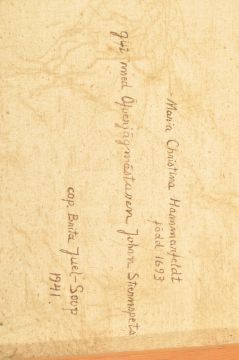 Maria Christina Hammarfeldt
född 1693
gift med Öfverjägmästaren Johan Stormspets
cop. Brita Juel-Soop
1941.